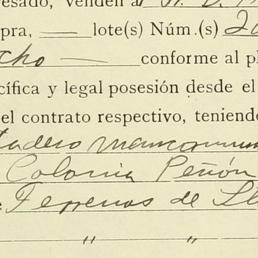 resado, venden a
pra, — lote(s) Núm.(s)
cho — conforme al pl
cífica y legal posesión desde el
el contrato respectivo, teniende
tadero mancomun
Colonia Peñón
Terrenos de
" "